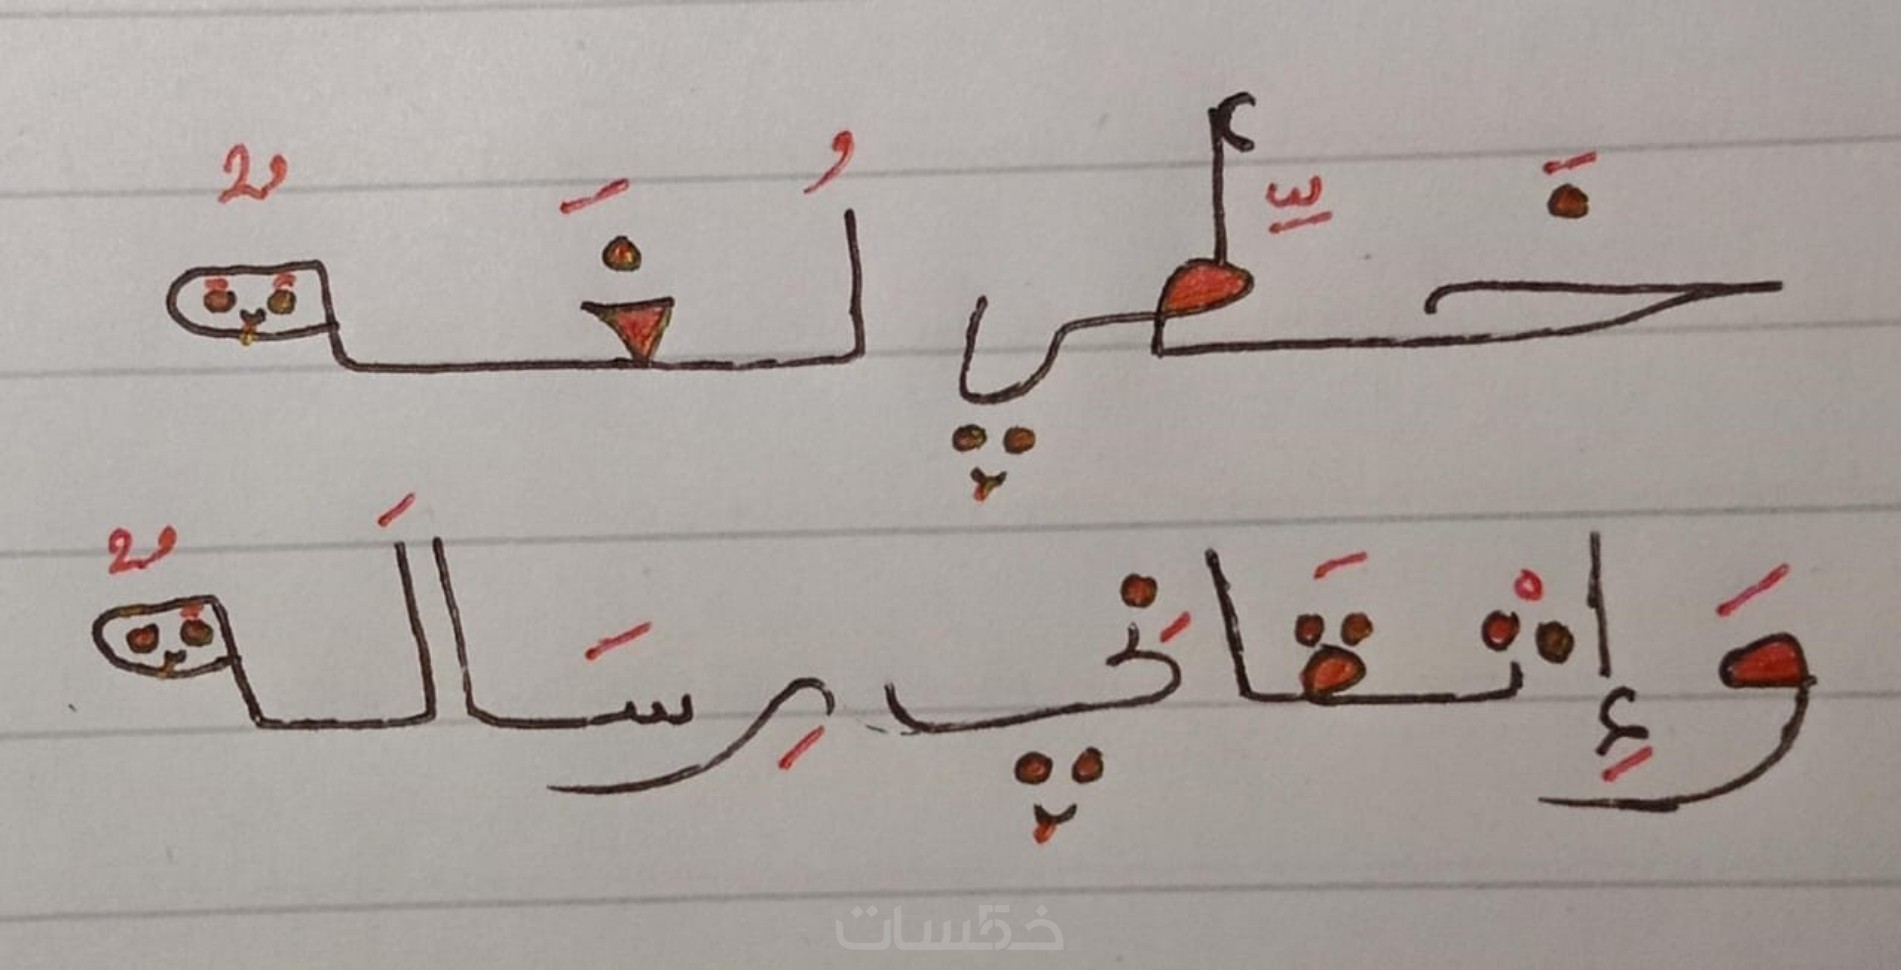 خَطِّي لُغَةٌ
وَإِتْقَانِي رِسَالَةٌ
خمسات